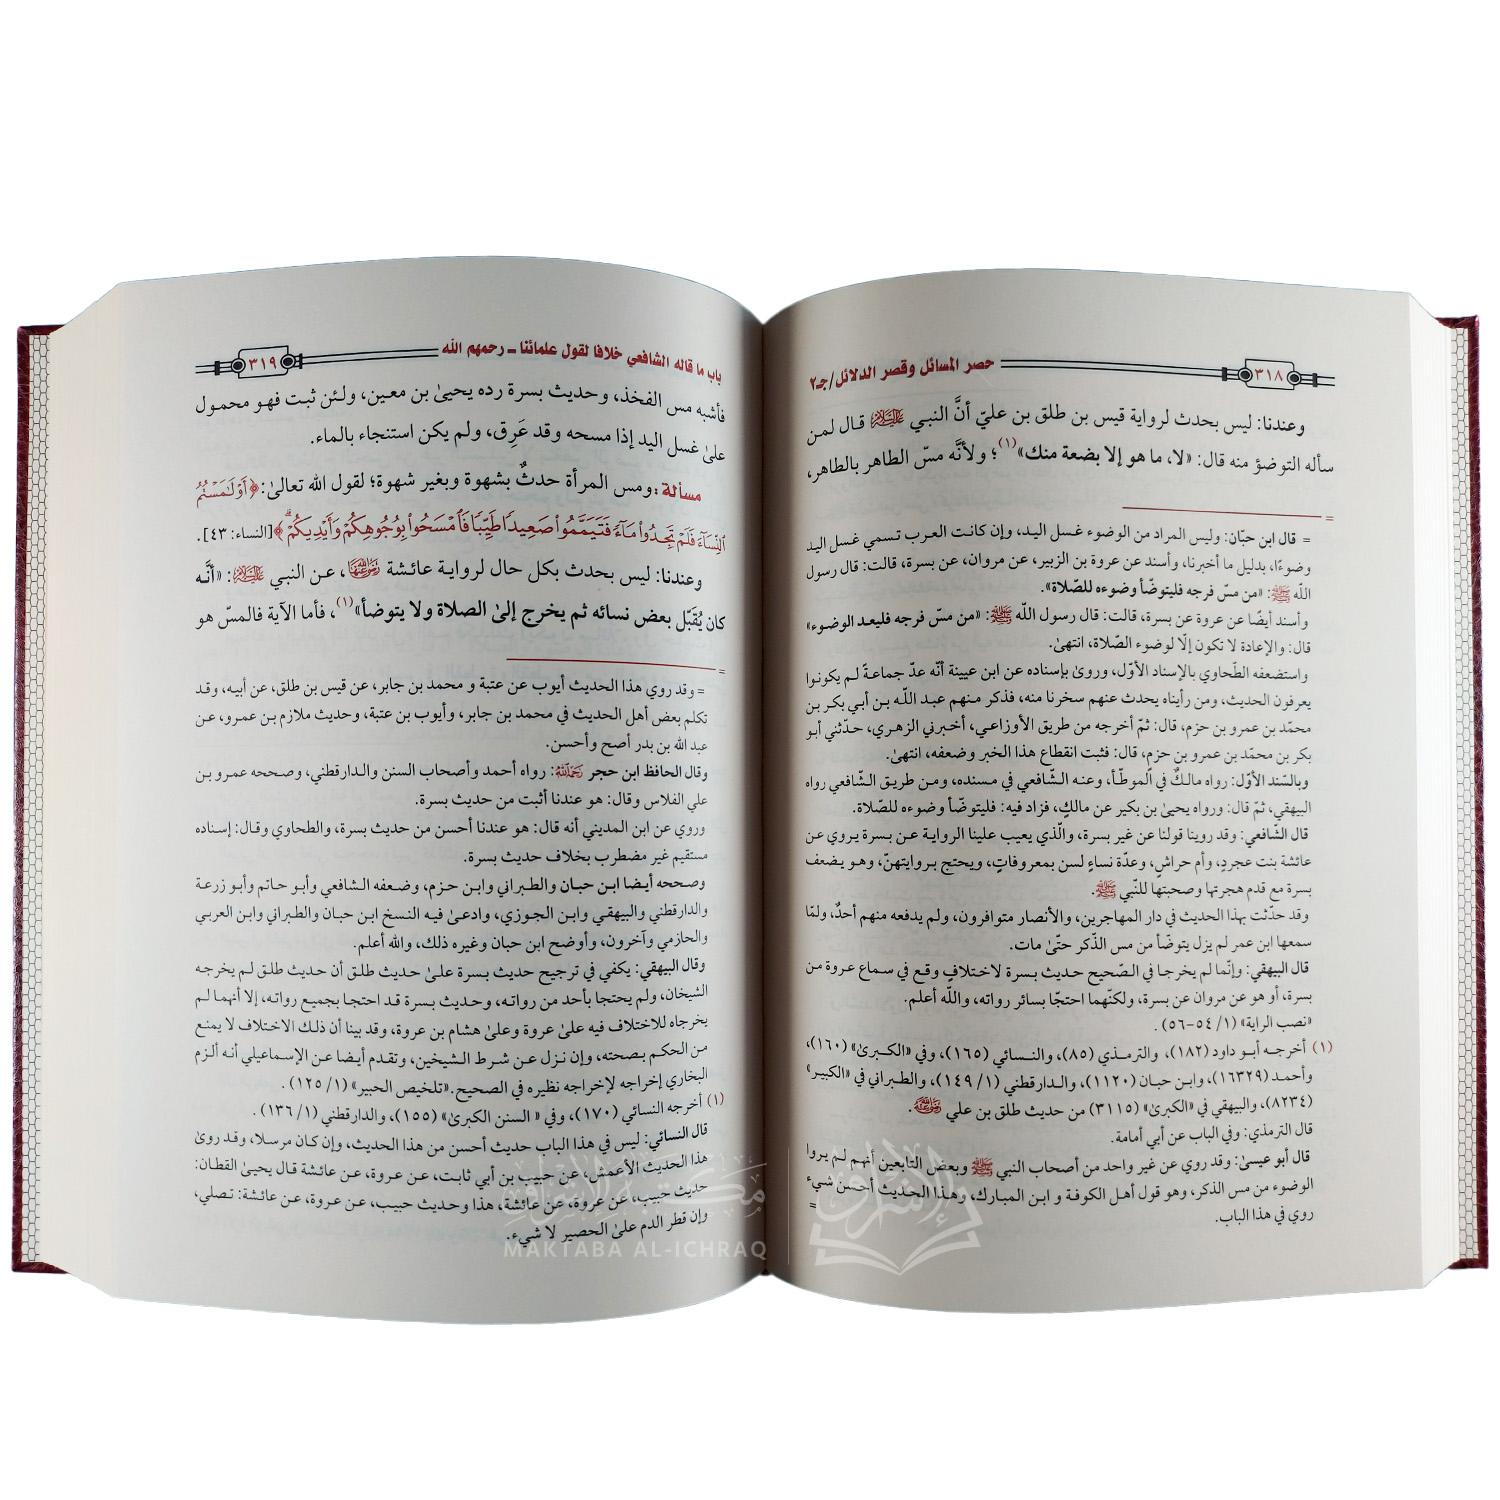 ٣١٨
حصر المسائل وقصر الدلائل/جـ٢
وعندنا: ليس بحدث لرواية قيس بن طلق بن عليّ أنَّ النبي عليه السلام قال لمن
سأله التوضؤ منه قال: «لا، ما هو إلا بضعة منك»(١)؛ ولأنَّه مسّ الطاهر بالطاهر،
= قال ابن حبّان: وليس المراد من الوضوء غسل اليد، وإن كانت العرب تسمي غسل اليد
وضوءًا، بدليل ما أخبرنا، وأسند عن عروة بن الزبير، عن مروان، عن بسرة، قالت: قال رسول
اللّه ﷺ: «من مسّ فرجه فليتوضّأ وضوءه للصّلاة».
وأسند أيضًا عن عروة عن بسرة، قالت: قال رسول اللّه ﷺ: «من مسّ فرجه فليعد الوضوء»
قال: والإعادة لا تكون إلّا لوضوء الصّلاة، انتهىٰ.
واستضعفه الطّحاوي بالإسناد الأوّل، وروىٰ بإسناده عن ابن عيينة أنّه عدّ جماعةً لم يكونوا
يعرفون الحديث، ومن رأيناه يحدث عنهم سخرنا منه، فذكر منهم عبد اللّه بن أبي بكر بن
محمّد بن عمرو بن حزم، قال: ثمّ أخرجه من طريق الأوزاعي، أخبرني الزهري، حدّثني أبو
بكر بن محمّد بن عمرو بن حزم، قال: فثبت انقطاع هذا الخبر وضعفه، انتهىٰ.
وبالسّند الأوّل: رواه مالكٌ في الموطّأ، وعنه الشّافعي في مسنده، ومن طريق الشّافعي رواه
البيهقي، ثمّ قال: ورواه يحيىٰ بن بكير عن مالكٍ، فزاد فيه: فليتوضّأ وضوءه للصّلاة.
قال الشّافعي: وقد روينا قولنا عن غير بسرة، والّذي يعيب علينا الرواية عن بسرة يروي عن
عائشة بنت عجردٍ، وأم حراشٍ، وعدّة نساءٍ لسن بمعروفاتٍ، ويحتج بروايتهنّ، وهو يضعف
بسرة مع قدم هجرتها وصحبتها للنّبي ﷺ.
وقد حدّثت بهذا الحديث في دار المهاجرين، والأنصار متوافرون، ولم يدفعه منهم أحدٌ، ولمّا
سمعها ابن عمر لم يزل يتوضّأ من مس الذّكر حتّىٰ مات.
قال البيهقي: وإنّما لم يخرجا في الصّحيح حديث بسرة لاختلافٍ وقع في سماع عروة من
بسرة، أو هو عن مروان عن بسرة، ولكنّهما احتجّا بسائر رواته، واللّه أعلم.
«نصب الراية» (١/ ٥٤-٥٦) .
(١) أخرجه أبو داود (١٨٢)، والترمذي (٨٥)، والنسائي (١٦٥)، وفي «الكبرىٰ» (١٦٠)،
وأحمد (١٦٣٢٩)، وابن حبان (١١٢٠)، والدارقطني (١/ ١٤٩)، والطبراني في «الكبير»
(٨٢٣٤)، والبيهقي في «الكبرىٰ» (٣١١٥) من حديث طلق بن علي رضي الله عنه.
قال الترمذي: وفي الباب عن أبي أمامة.
قال أبو عيسىٰ: وقد روي عن غير واحد من أصحاب النبي ﷺ وبعض التابعين أنهم لم يروا
الوضوء من مس الذكر، وهو قول أهل الكوفة و ابن المبارك، وهذا الحديث أحسن شيء
روي في هذا الباب. =
باب ما قاله الشافعي خلافا لقول علمائنا – رحمهم الله
٣١٩
فأشبه مس الفخذ، وحديث بسرة رده يحيىٰ بن معين، ولئن ثبت فهو محمول
علىٰ غسل اليد إذا مسحه وقد عَرِق، ولم يكن استنجاء بالماء.
مسألة: ومس المرأة حدثٌ بشهوة وبغير شهوة؛ لقول الله تعالىٰ: ﴿أَوۡ لَٰمَسۡتُمُ
ٱلنِّسَآءَ فَلَمۡ تَجِدُواْ مَآءٗ فَتَيَمَّمُواْ صَعِيدٗا طَيِّبٗا فَٱمۡسَحُواْ بِوُجُوهِكُمۡ وَأَيۡدِيكُمۡۗ﴾ [النساء: ٤٣].
وعندنا: ليس بحدث بكل حال لرواية عائشة رضي الله عنها، عن النبي عليه السلام: «أنَّه
كان يُقَبِّل بعض نسائه ثم يخرج إلىٰ الصلاة ولا يتوضأ»(١)، فأما الآية فالمسّ هو
= وقد روي هذا الحديث أيوب عن عتبة و محمد بن جابر، عن قيس بن طلق، عن أبيه، وقد
تكلم بعض أهل الحديث في محمد بن جابر، وأيوب بن عتبة، وحديث ملازم بن عمرو، عن
عبد الله بن بدر أصح وأحسن.
وقال الحافظ ابن حجر رحمه الله: رواه أحمد وأصحاب السنن والدارقطني، وصححه عمرو بن
علي الفلاس وقال: هو عندنا أثبت من حديث بسرة.
وروي عن ابن المديني أنه قال: هو عندنا أحسن من حديث بسرة، والطحاوي وقال: إسناده
مستقيم غير مضطرب بخلاف حديث بسرة.
وصححه أيضا ابن حبان والطبراني وابن حزم، وضعفه الشافعي وأبو حاتم وأبو زرعة
والدارقطني والبيهقي وابن الجوزي، وادعىٰ فيه النسخ ابن حبان والطبراني وابن العربي
والحازمي وآخرون، وأوضح ابن حبان وغيره ذلك، والله أعلم.
وقال البيهقي: يكفي في ترجيح حديث بسرة علىٰ حديث طلق أن حديث طلق لم يخرجه
الشيخان، ولم يحتجا بأحد من رواته، وحديث بسرة قد احتجا بجميع رواته، إلا أنهما لم
يخرجاه للاختلاف فيه علىٰ عروة وعلىٰ هشام بن عروة، وقد بينا أن ذلك الاختلاف لا يمنع
من الحكم بصحته، وإن نزل عن شرط الشيخين، وتقدم أيضا عن الإسماعيلي أنه ألزم
البخاري إخراجه لإخراجه نظيره في الصحيح.«تلخيص الحبير» (١/ ١٢٥) .
(١) أخرجه النسائي (١٧٠)، وفي « السنن الكبرىٰ» (١٥٥)، والدارقطني (١/ ١٣٦) .
قال النسائي: ليس في هذا الباب حديث أحسن من هذا الحديث، وإن كان مرسلا، وقد روىٰ
هذا الحديث الأعمش، عن حبيب بن أبي ثابت، عن عروة، عن عائشة قال يحيىٰ القطان:
حديث حبيب، عن عروة، عن عائشة، هذا وحديث حبيب، عن عروة، عن عائشة: تصلي،
وإن قطر الدم علىٰ الحصير لا شيء.
مكتبة الإشراق
MAKTABA AL-ICHRAQ
الإشراق